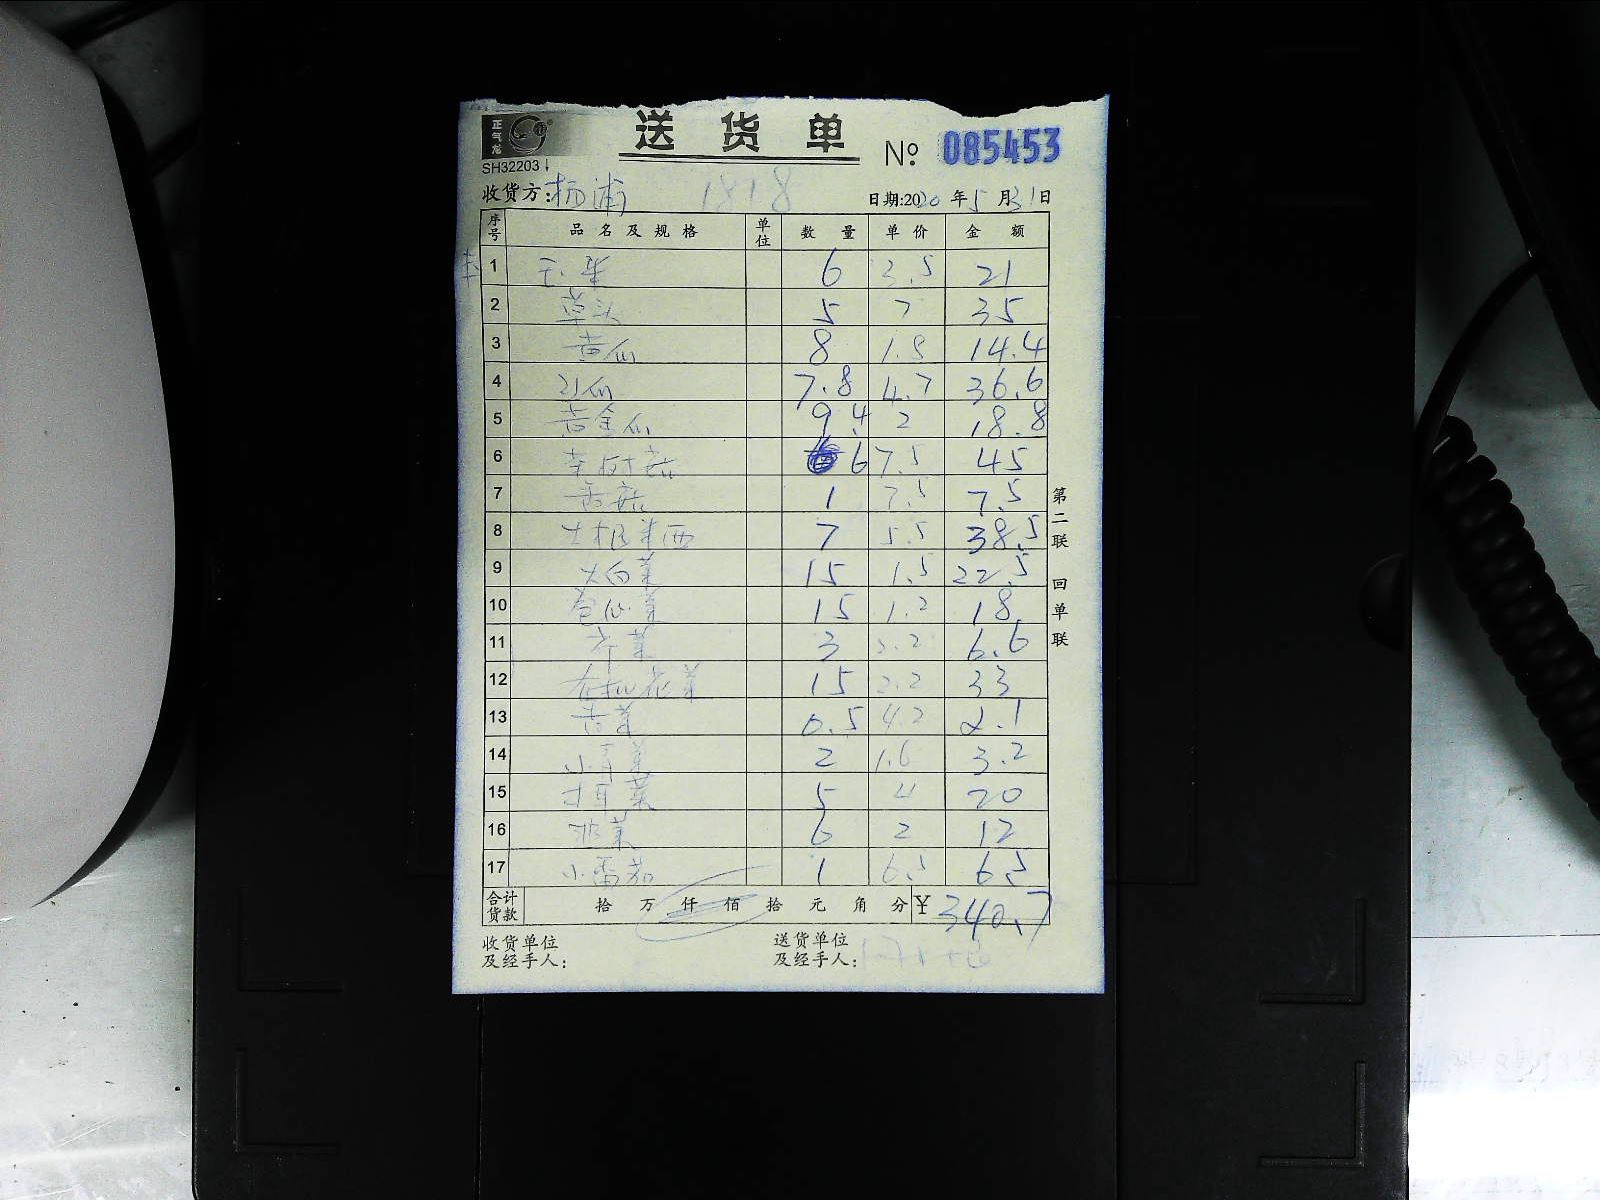 正气龙
送货单
№ 085453
SH32203
收货方:杨浦 1818 日期:2020年5月31日
序号 品名及规格 单位 数量 单价 金额
1 玉米 6 3.5 21
2 草头 5 7 35
3 黄瓜 8 1.8 14.4
4 7.8 4.7 36.6
5 黄金瓜 9.4 2 18.8
6 茶树菇 6 7.5 45
7 香菇 1 7.5 7.5
8 7 5.5 38.5
9 大白菜 15 1.5 22.5
10 15 1.2 18
11 芹菜 3 2.2 6.6
12 有机花菜 15 2.2 33
13 0.5 4.2 2.1
14 小青菜 2 1.6 3.2
15 5 4 20
16 菠菜 6 2 12
17 小番茄 1 6.5 6.5
合计货款 拾万仟佰拾元角分 ¥340.7
第二联 回单联
收货单位及经手人:
送货单位及经手人: